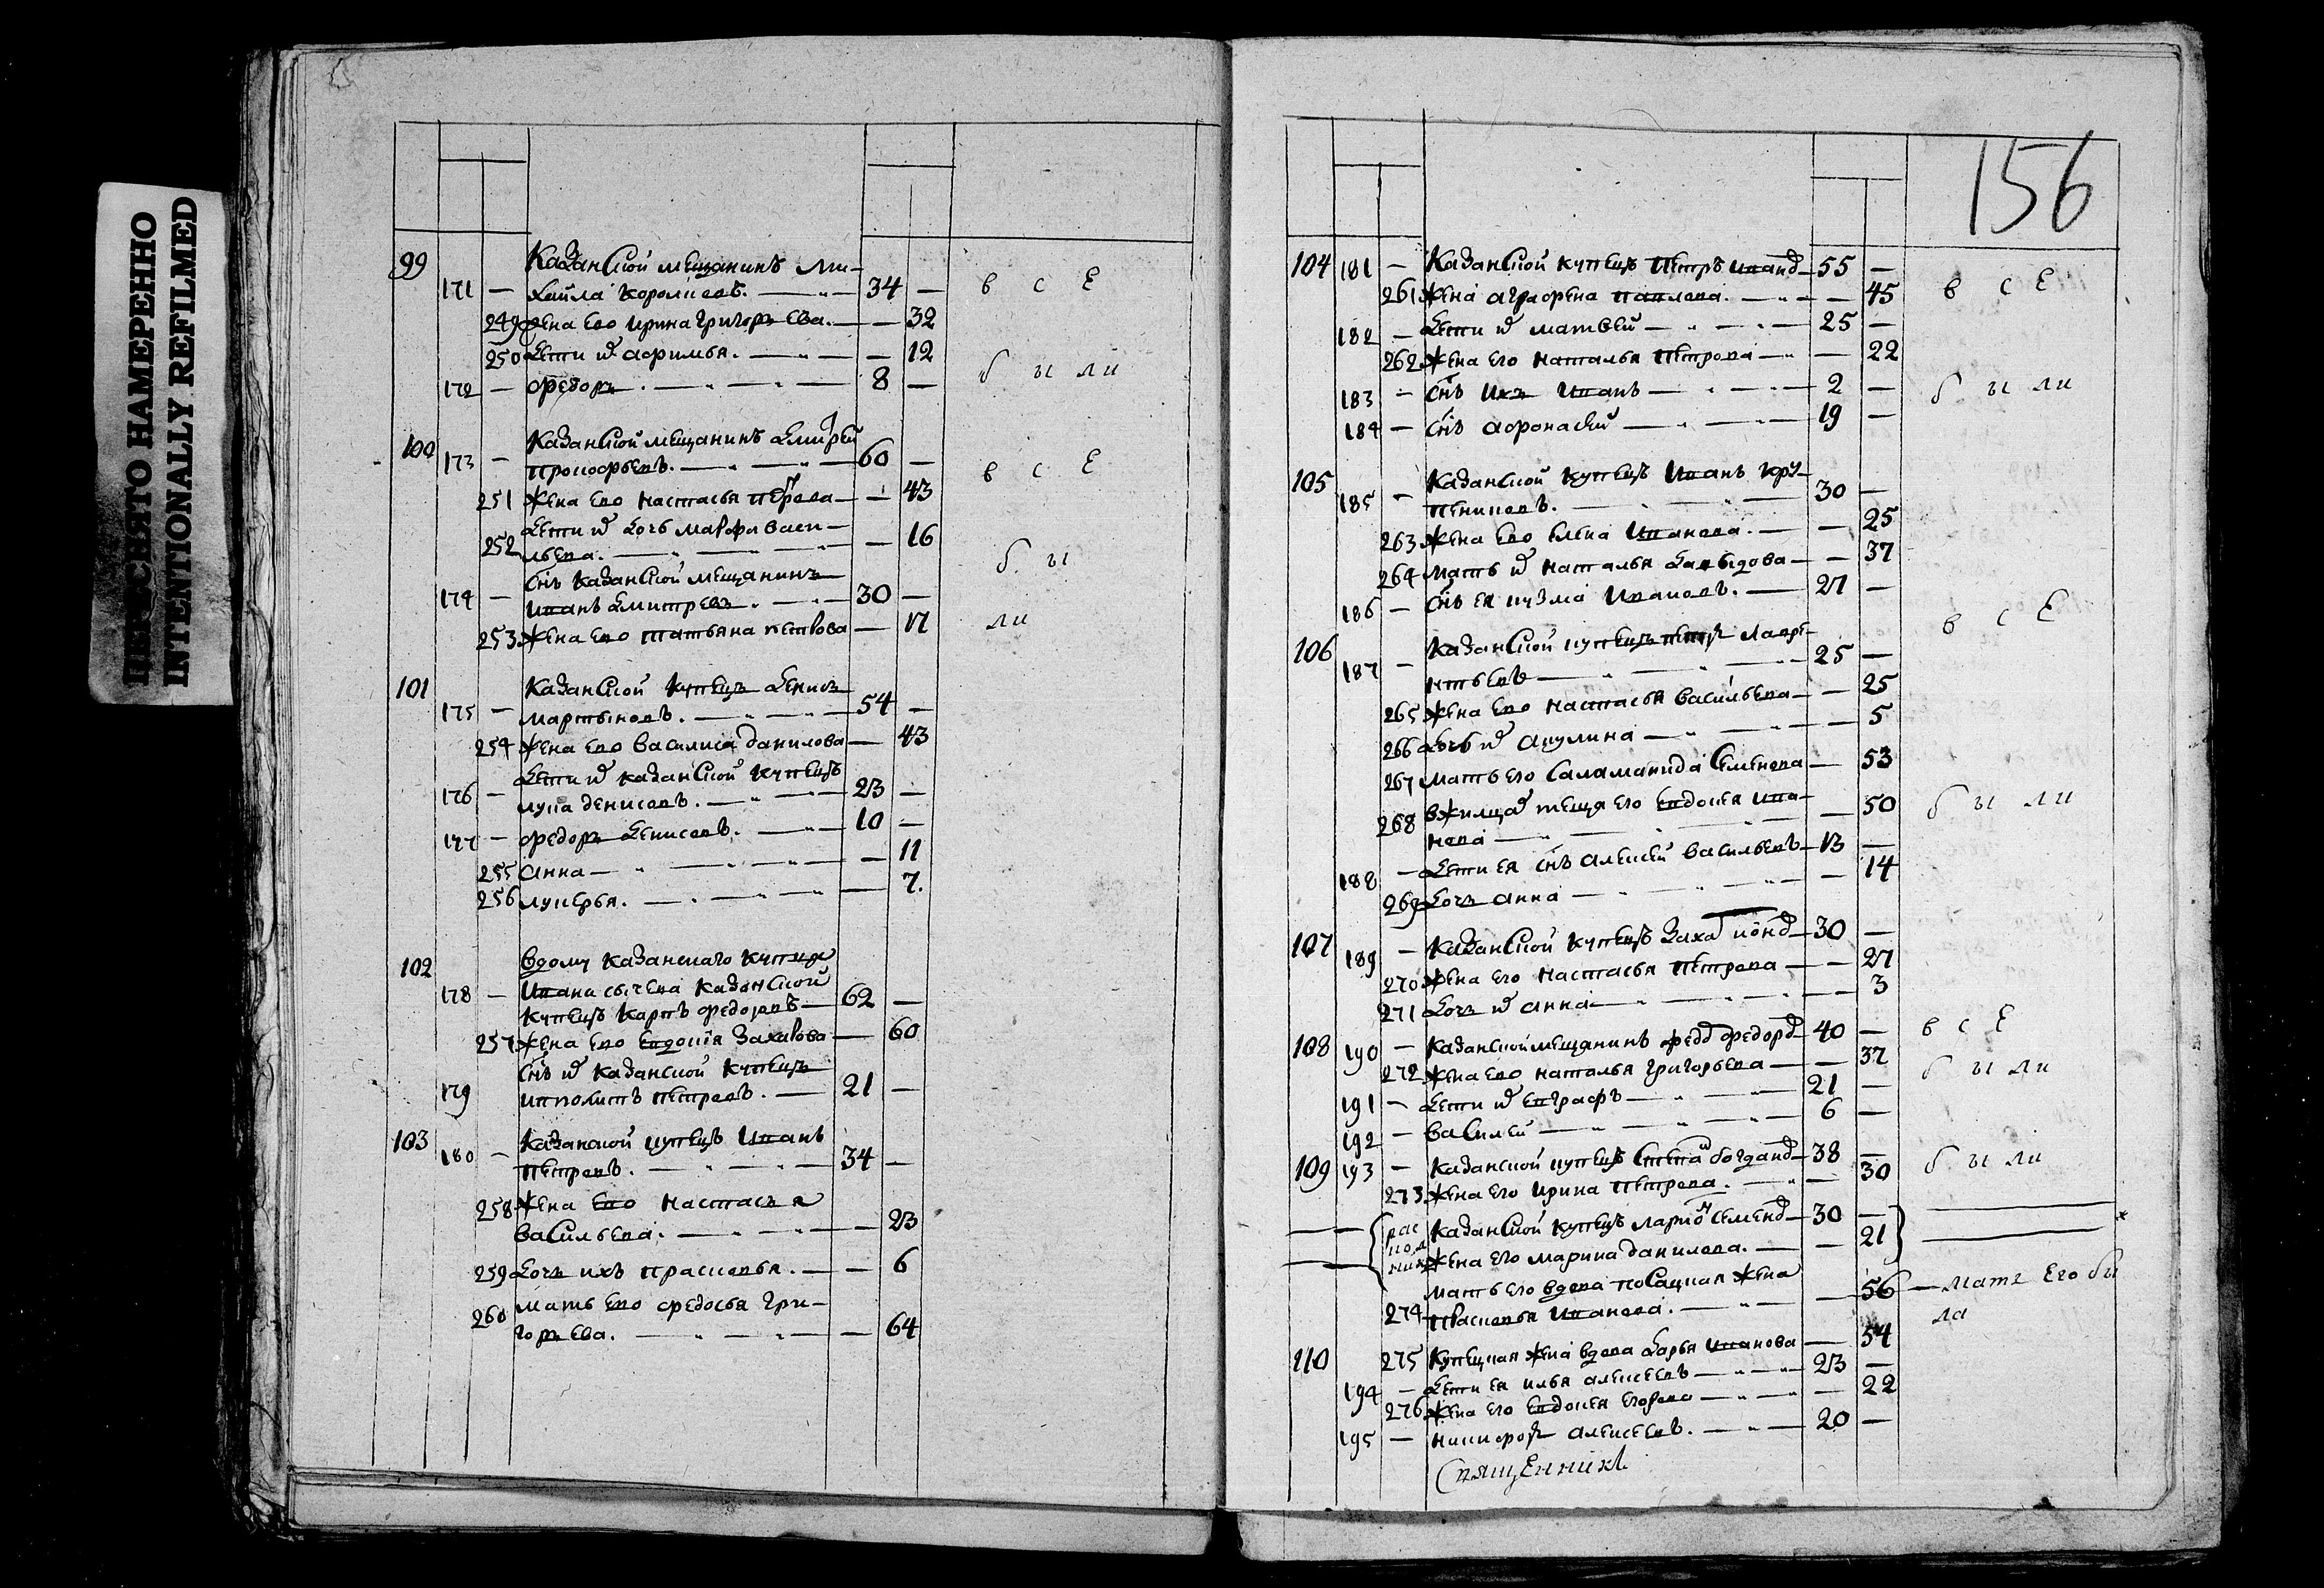 ПЕРЕСНЯТО НАМЕРЕННО
INTENTIONALLY REFILMED
99 Казанской мещанинъ Ми-
171 — хайла Королковъ. — 34 — в с е
249 жена ево Ирина Григорьева. — — 32
250 дети их Афимья. — — 12
172 — Федоръ. — 8 — б ы ли
100 Казанской мещанинъ Дмитрей
173 — Прокофьевъ. — 60 — в с е
251 жена ево Настасья Петрова — — 43
дети их дочь Марфа Васи-
252 льева. — — 16
снъ Казанской мещанинъ б ы
174 — Иванъ Дмитревъ. — 30 —
253 жена ево Татьяна Петрова — 17 ли
101 Казанской купецъ Денисъ
175 — Мартыновъ. — 54 —
254 жена ево Василиса Данилова — 43
дети их Казанской купецъ
176 — Лука Денисовъ. — 23 —
177 — Федоръ Денисовъ. — 10 —
255 Анна — — 11
256 Лукерья. — — 7.
102 в дому Казанскаго купца
178 — Ивана Сычева Казанской
купецъ Карпъ Федоровъ — 62 —
257 жена ево Евдокия Захарова — 60
снъ их Казанской купецъ
179 Иполитъ Петровъ. — 21 —
103 180 — Казанской купецъ Иванъ
Петровъ. — 34 —
258 жена ево Настасья
Васильева. — — 23
259 дочь ихъ Прасковья. — — 6
260 мать ево Федосья Гри-
горьева. — — 64
156
104 181 — Казанской купецъ Петръ Иванов — 55 — в с е
261 жена Аграфена Павлова. — — 45
182 — дети их Матвей — 25 —
262 жена его Наталья Петрова — — 22
183 — снъ ихъ Иванъ — 2 — б ы ли
184 — снъ Афонасей — 19 —
105 Казанской купецъ Иванъ Кру-
185 — пениковъ. — 30 —
263 жена ево Елена Иванова. — — 25
264 мать их Наталья Давыдова — — 37
186 — снъ ея Кузма Ивановъ. — 27 — в с е
106 Казанской купецъ Петръ Лавре-
187 — нтьевъ — 25 —
265 жена ево Настасья Васильева — — 25
266 дочь их Акулина — — 5
267 мать его Саламанида Семенова — 53
268 в жилцах теща его Евдокея Ива- — 50 б ы ли
нова —
188 — дети ея снъ Алексей Васильевъ — 13 —
269 дочь Анна — — 14
107 189 — Казанской купецъ Заха — 30 —
270 жена его Настасья Петрова — — 27
271 дочь их Анна — — 3
108 190 — Казанской мещанинъ Федор Федоров — 40 — в с е
272 жена ево Наталья Григорьева — — 37 б ы ли
191 — дети их Евграфъ — 21 —
192 — Василей — 6 —
109 193 — Казанской купецъ Степан Богданов — 38 — б ы ли
273 жена его Ирина Петрова. — — 30
рас Казанской купецъ Ларион Семенов — 30 —
кол
ники жена его Марина Данилова. — — 21
мать его вдова посацкая жена
274 Прасковья Иванова. — — 56 — мать его бы
ла
110 275 купецкая жена вдова Дарья Иванова — 54
194 — дети ея Илья Алексеевъ — 23 —
276 жена его Евдокея Егорова — — 22
195 — Никифор Алексеевъ. — 20 —
Священникъ